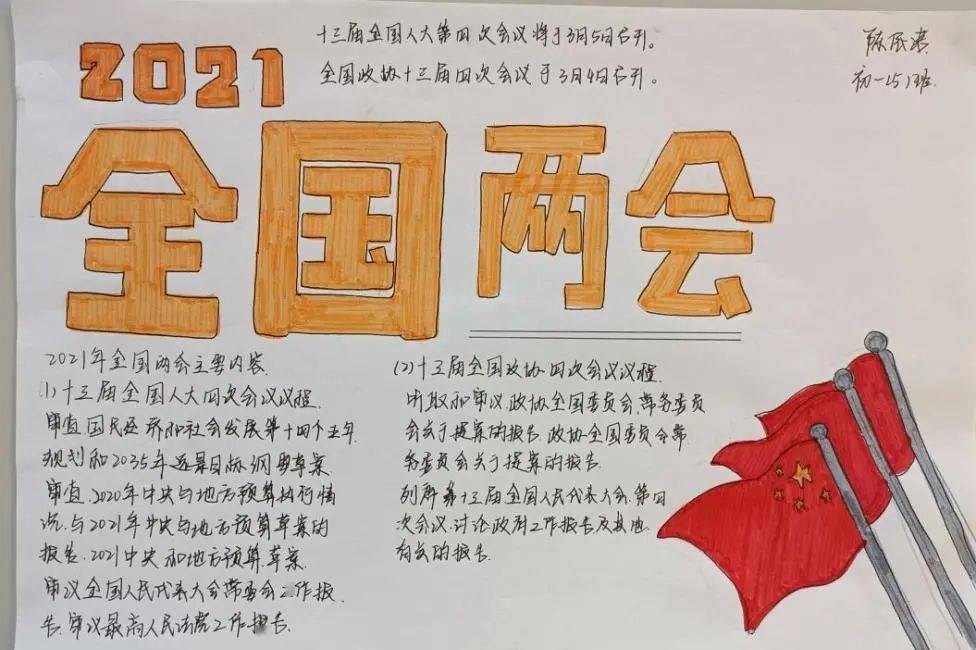 十三届全国人大第四次会议将于3月5日召开。
全国政协十三届四次会议于3月4日召开。
初一(5)班
2021
全国两会
2021年全国两会主要内容
(1)十三届全国人大四次会议议程
审查国民经济和社会发展第十四个五年
规划和2035年远景目标纲要草案
审查、2020年中央与地方预算执行情
况与2021年中央与地方预算草案的
报告、2021中央和地方预算草案
审议全国人民代表大会常委会工作报
告、审议最高人民法院工作报告
(2)十三届全国政协四次会议议程
听取和审议政协全国委员会常务委员
会关于提案的报告、政协全国委员会常
务委员会关于提案的报告
列席第十三届全国人民代表大会第四
次会议、讨论政府工作报告及其他
有关的报告